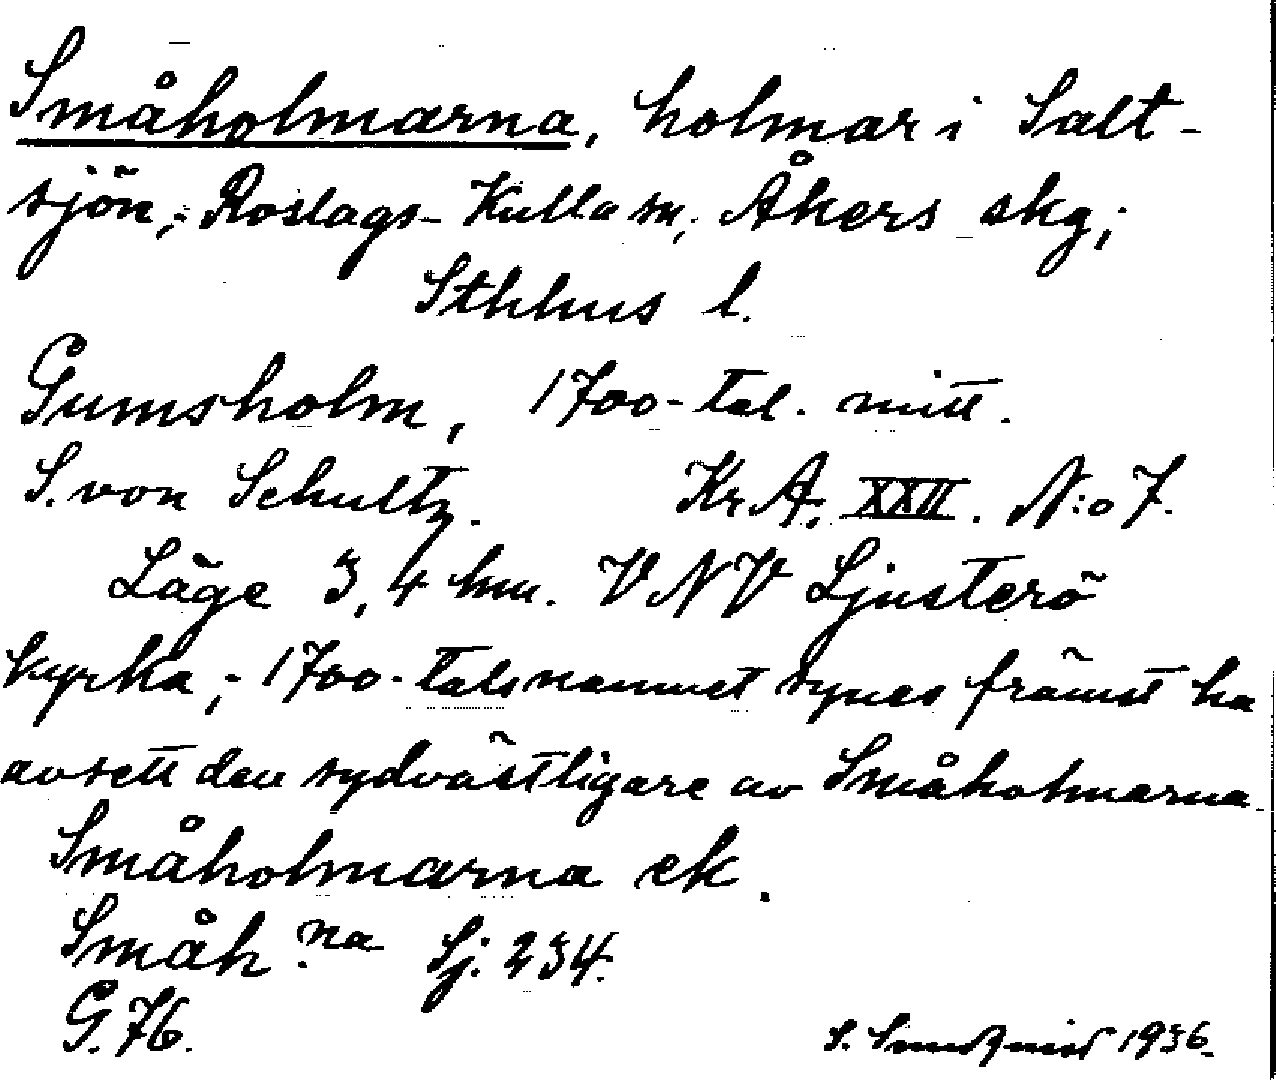 Småholmarna, holmar i Salt-
sjön, Roslags-Kulla sn, Åkers skg;
Sthlms l.
Gumsholm, 1700-tal. mitt.
S. von Schultz. Kr.A. XXII. N:o 7.
Läge 3,4 km. VNV Ljusterö
kyrka; 1700-talsnamnet synes främst ha
avsett den sydvästligare av Småholmarna.
Småholmarna ek.
Småh:na Sj. 234.
G. 76.
S. Sundqvist 1936.